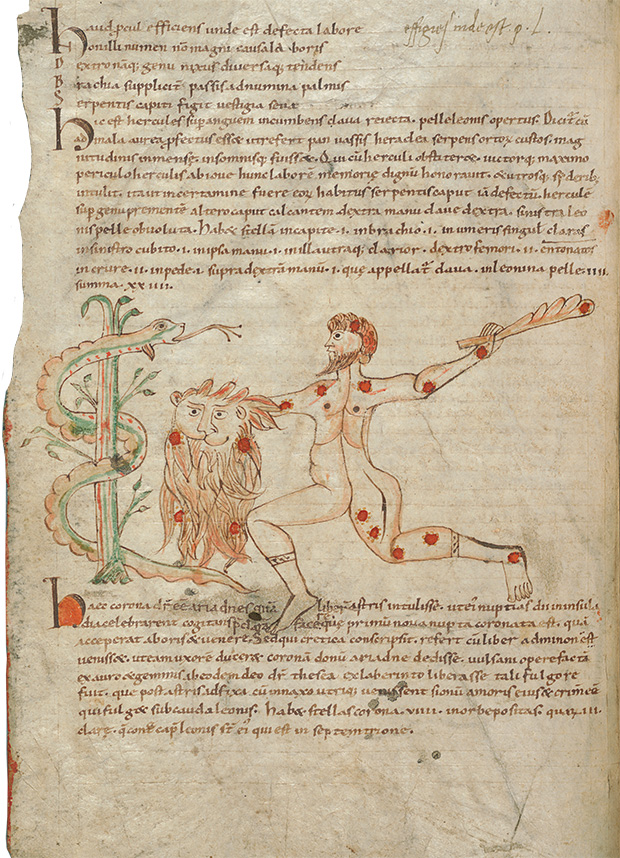 haud pcul efficiens unde est defecta labore
effigies inde est p. l.
honilli numen nō magni causa laboris
D extronāq; genu nixus diversaq; tendens
B rachia supplicit passis ad numina palmis
S erpentis capiti figit vestigia
hic est hercules sup anguem incumbens clava reiecta. pelle leonis opertus. Dicit cū
ad mala aurea pfectus esse utrefert pan vassis heraclea serpens ortor custos. mag
nitudinis inmense; insomnisq; fuisse. Q; in cū herculi obstitere. victorq; maximo
periculo herculis abiove hunc labore memorie dignū honoravit. &utrosq; sideribȝ
intulit. ita ut in certamine fuere eor habitus serpentis caput iā defectū. hercule
sup genu premente altero caput calcantem dextra manu clave dextra. sinistra leo
nis pelle obvoluta. habet stellā incapite .i. inbrachio .i. inumeris singul claras
insinistro cubito .i. inipsa manu .i. inilla utraq; clarior. dextro femori .ii.
incrure .ii. inpede .i. supra dextrā manu .i. que appellat clava. inleonina pelle .iiii.
summa. xxiiii.
haec corona dr ee ariadnes quā liber astris intulisse. utei nuptias dii ininsula
dia celebrarent cogitans pclara facere que primū nova nupta coronata est. quā
acceperat aboris & venere. sed qui cretica conscripsit. refert cū liber adminon est
venisse & ut eam uxorē ducere coronā donū ariadne dedisse. vulsani opere factā
ex auro & gemmis abeodem deo dr thesea exlaberinto liberasse tali fulgore
fuit. que post astris id fixa cū innaxo utriq; venissent signū amoris eius &
qui fulg& sub cauda leonis. habet stellas corona. viiii. inorbe positas. quar iii
clare. q cont cap leonis st ei qui est in septemtrione.